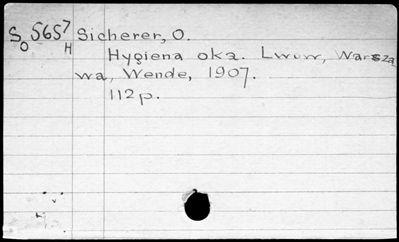 So 5657 Sicherer, O.
H Hygiena oka. Lwów, Warsza
wa, Wende, 1907.
112 p.